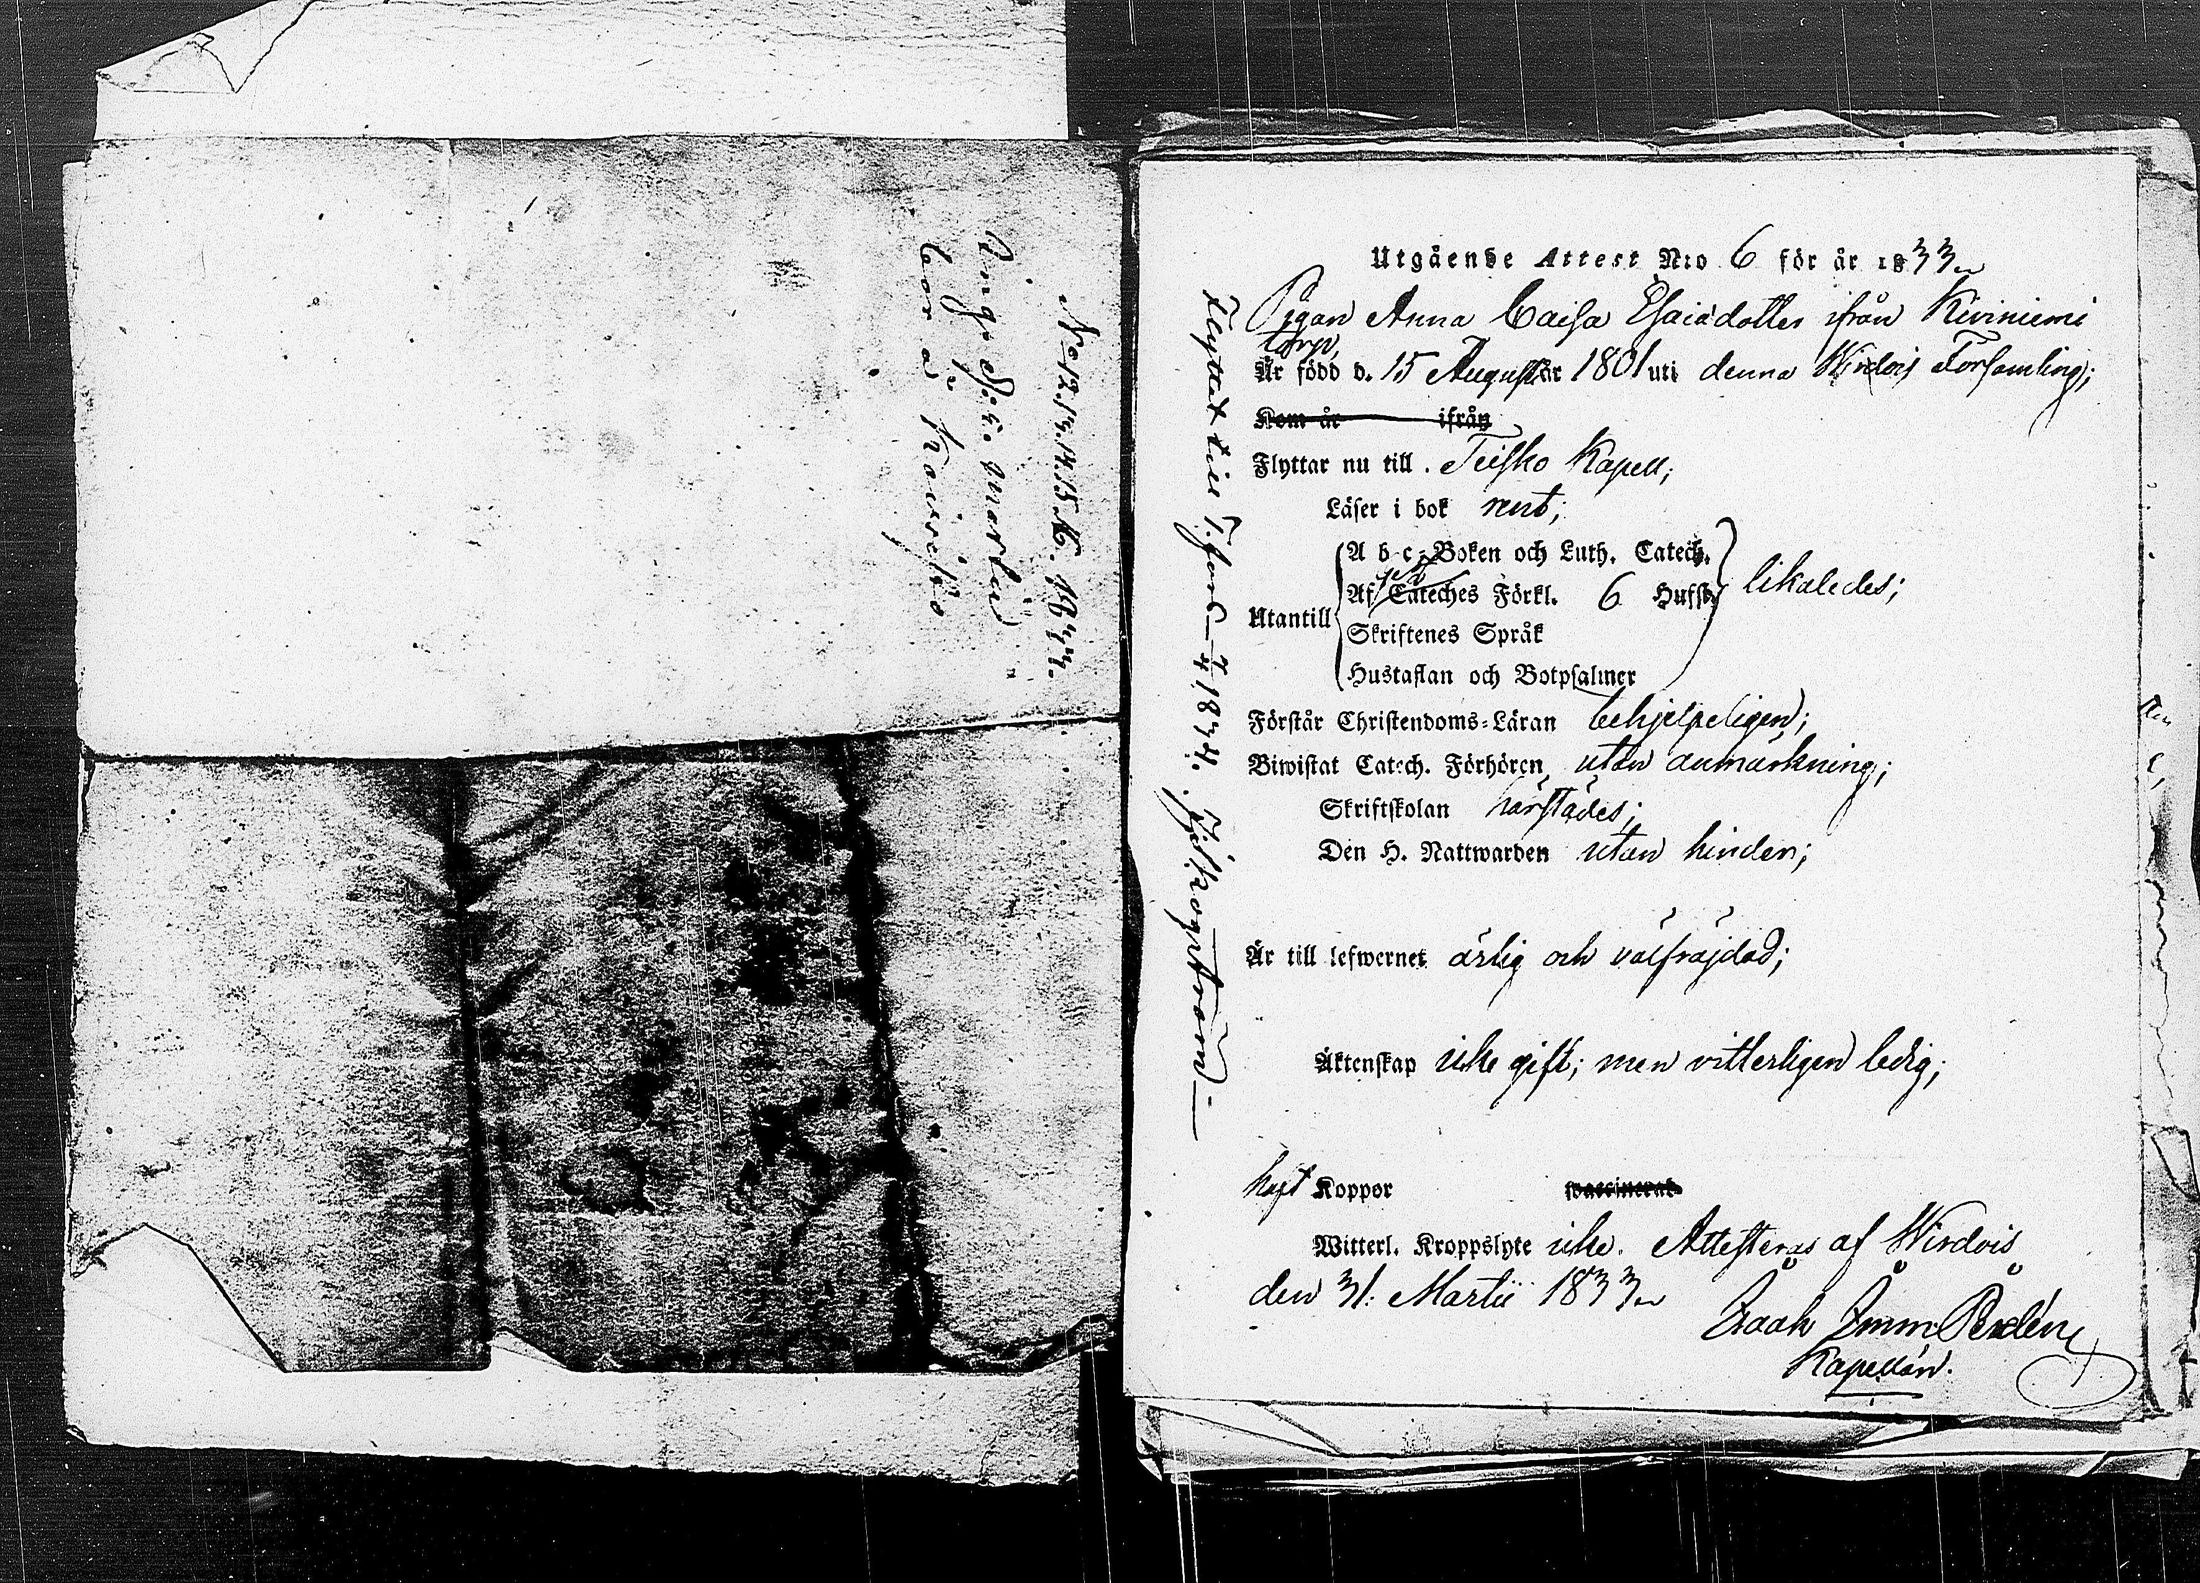 No 12. 13. 14. 15. 16. 1833.
bor å
Utgående Attest N:o 6 för år 1833
Pigan Anna Caisa Esaiædotter ifrån Kiviniemi
torp,
Är född d. 15 Augusti år 1801 uti denna Wirdois Församling;
Kom år ifrån
Flyttar nu till. Teisko Kapell;
Läser i bok rent;
Utantill
A b c-Boken och Luth. Catech.
Af Cateches Förkl. 6 Hufst.
Skriftenes Språk
Hustaflan och Botpsalmer
likaledes;
Förstår Christendoms-Läran behjelpeligen;
Biwistat Catech. Förhören utan anmärkning;
Skriftskolan härstädes;
Den H. Nattwarden utan hinder;
Är till lefwernet ärlig och välfräjdad;
Äktenskap icke gift; men vitterligen ledig;
haft Koppor vaccinerat
Witterl. Kroppslyte icke. Attesteras af Wirdois
den 31. Martii 1833
Isaak Imm
Kapellan.
Flyttat till T:fors 1834.